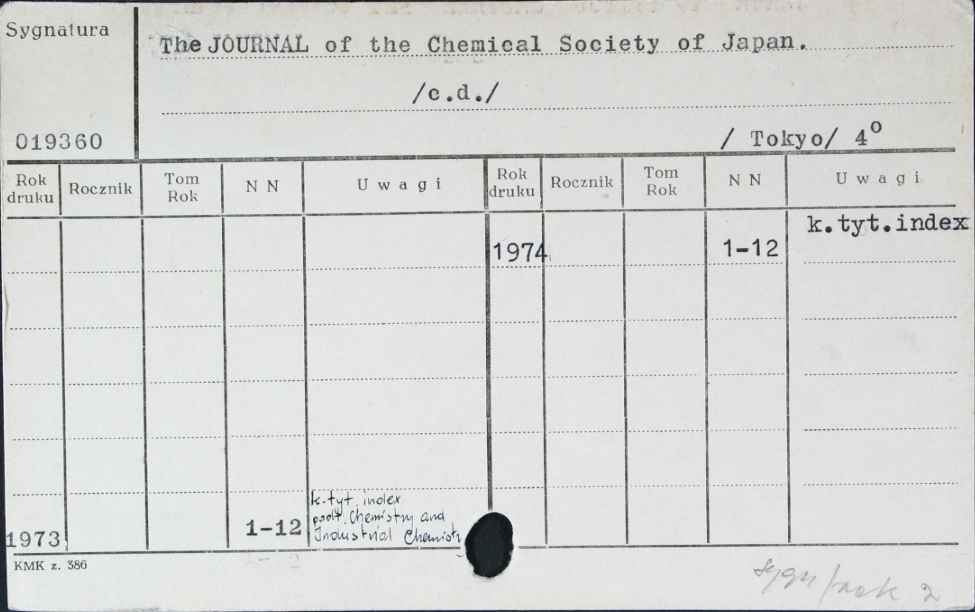 Sygnatura
The JOURNAL of the Chemical Society of Japan.
/c.d./
019360
/ Tokyo/ 4º
Rok druku Rocznik Tom Rok N N U w a g i Rok druku Rocznik Tom Rok N N U w a g i
k.tyt.index
1974 1-12
k.tyt. index
podt. Chemistry and
1973 1-12 Industrial Chemistry
KMK z. 386
2